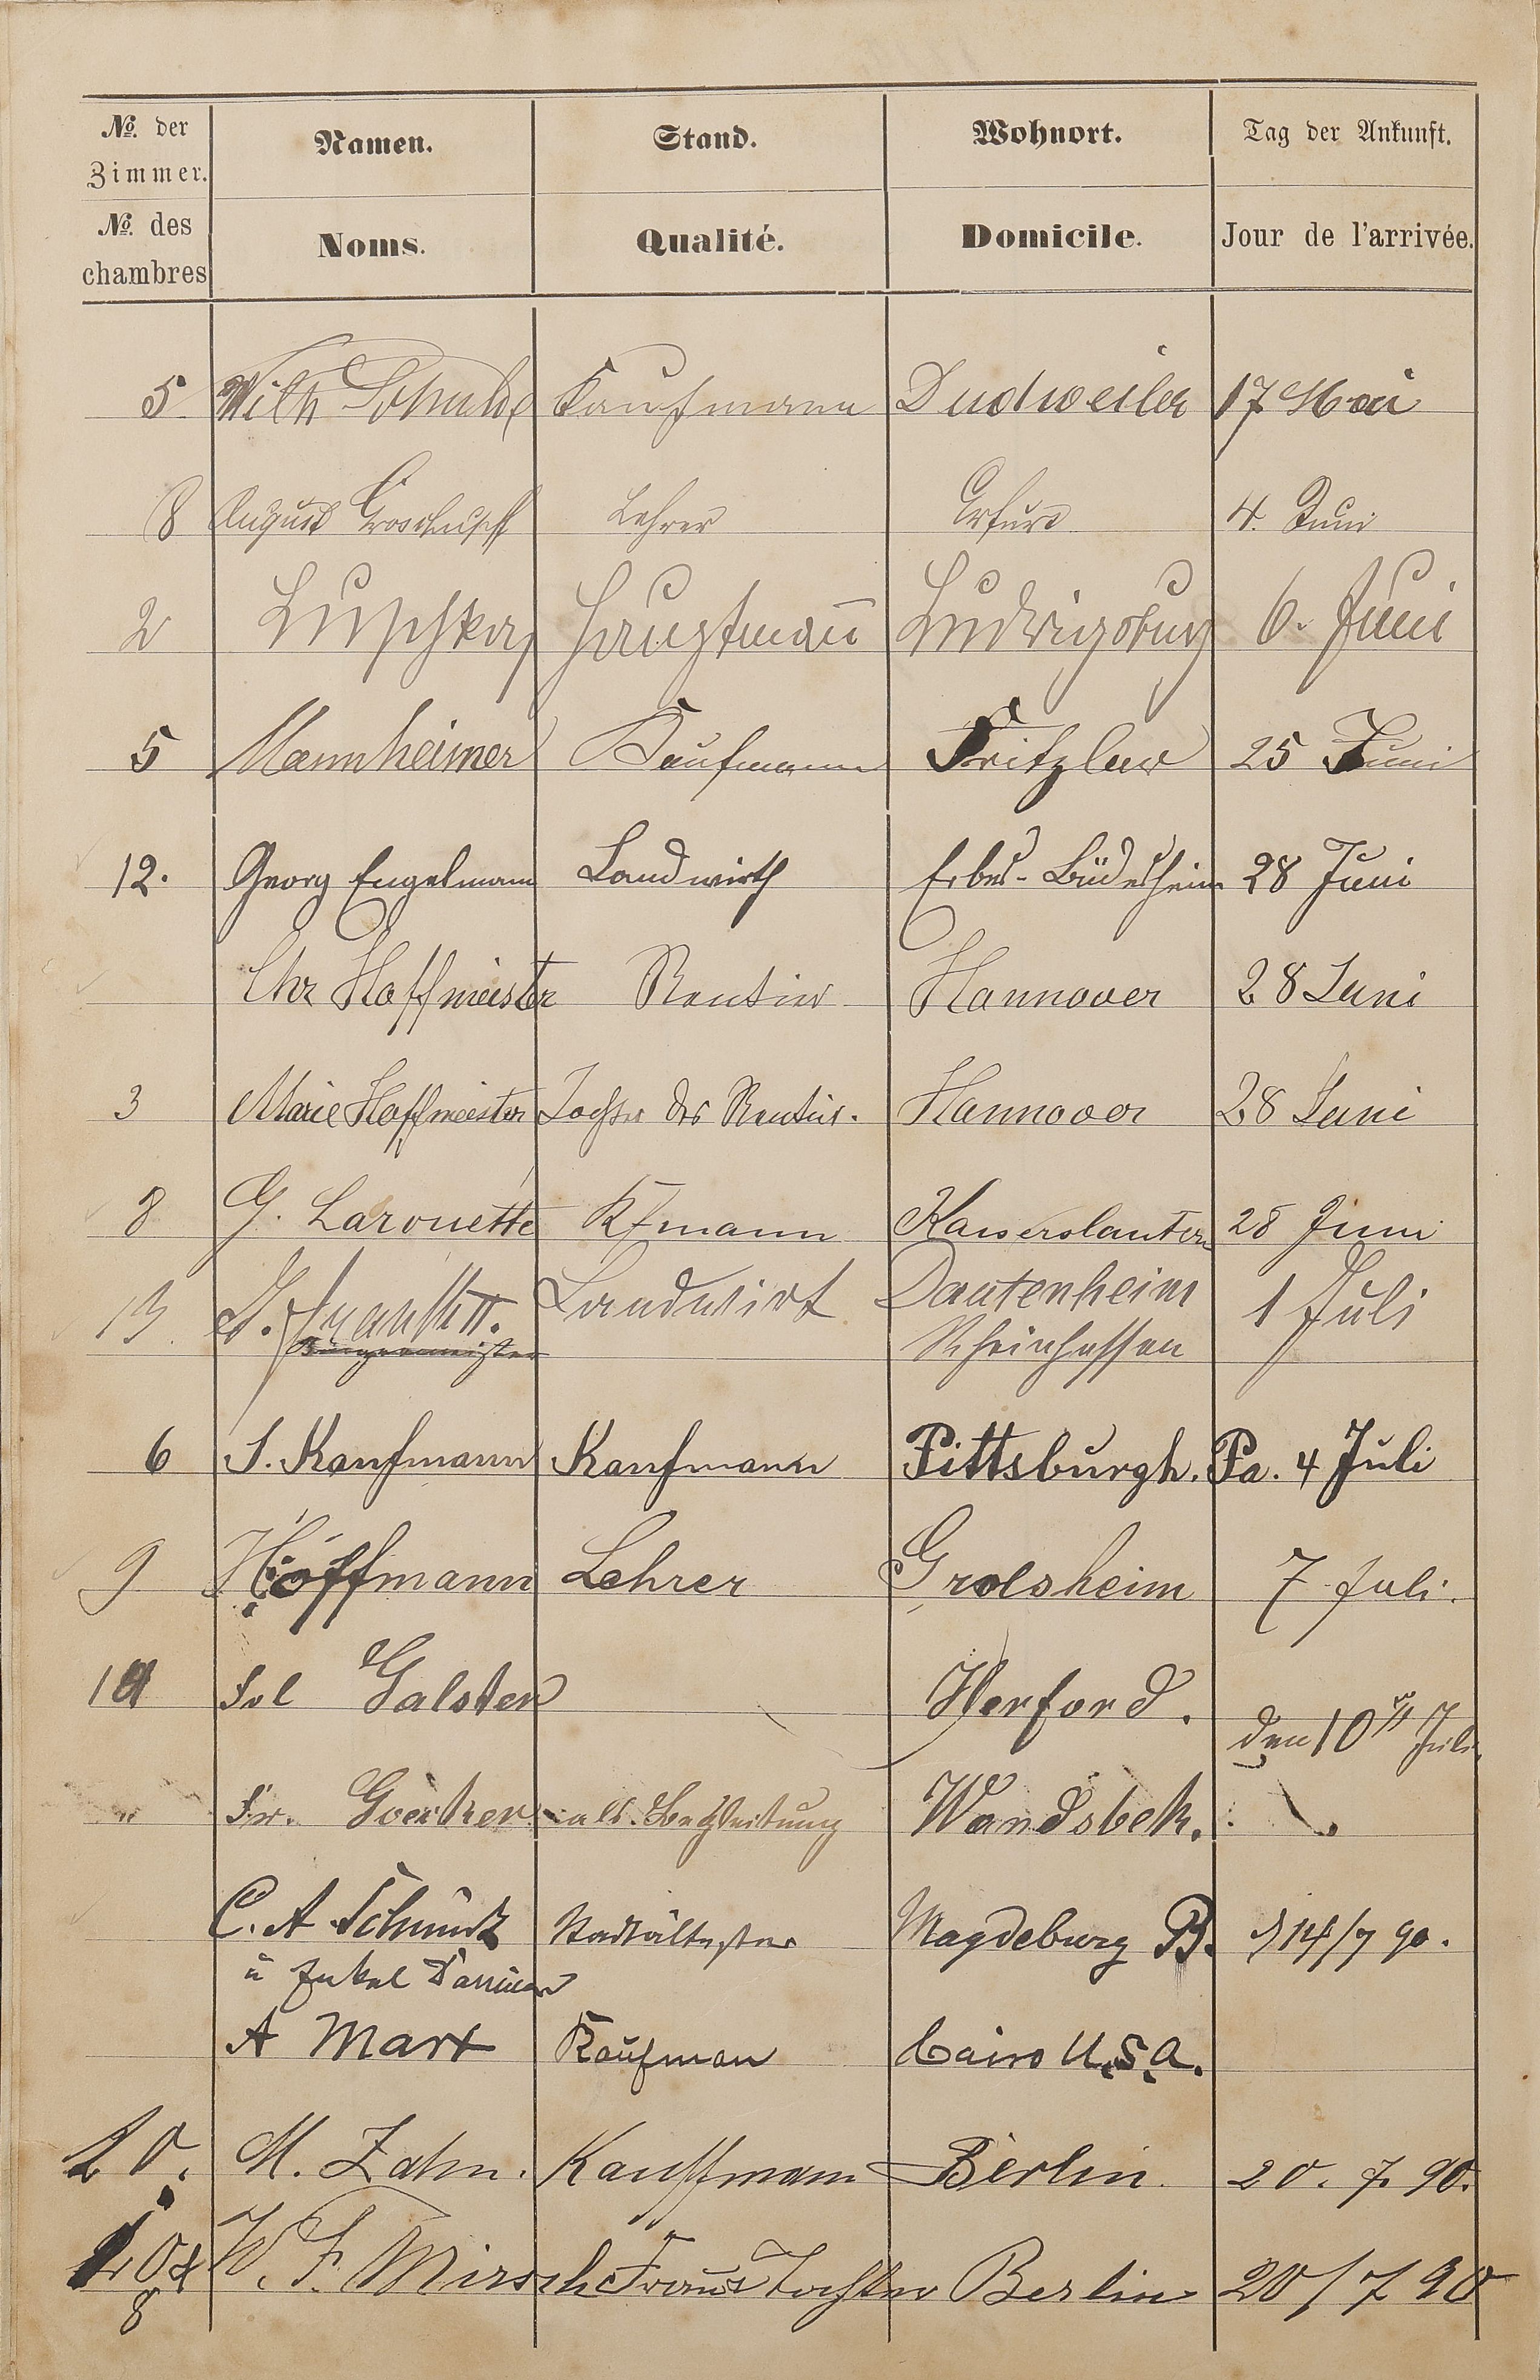 No. der Zimmer. Namen. Stand. Wohnort. Tag der Ankunft.
No. des chambres Noms. Qualité. Domicile. Jour de l'arrivée.
5 Wilh Kaufmann Dudweiler 17 Mai
8 August Lehrer Erfurt 4. Juni
2 Luschka Hauptmañ Ludwigsburg 6. Juni
5 Mannheimer Kaufmann Fritzlar 25 Juni
12. Georg Engelmann Landwirth Erbes-Büdesheim 28 Juni
Chr Hoffmeister Rentier Hannover 28 Juni
3 Marie Hoffmeister Tochter des Rentier. Hannover 28 Juni
8 G. Larouette Kfmann Kaiserslautern 28 Juni
13. II. Landwirt Dautenheim 1 Juli
Bürgermeister Rheinhessen
6 S. Kaufmann Kaufmann Pittsburgh. Pa. 4 Juli
9 Hoffmann Lehrer Grolsheim 7 Juli.
Frl Galster Herford. den 10 Juli
" Fr. als Begleitung Wandsbek.
C. A Stadtältester Magdeburg B. 14/7 90.
u Enkel
A Marx Kaufman Cairo U.S.A.
20. M. Zahn. Kauffmann Berlin 20. 7. 90.
W. F. Mirsch Frau & Tochter Berlin 20/7 90
8